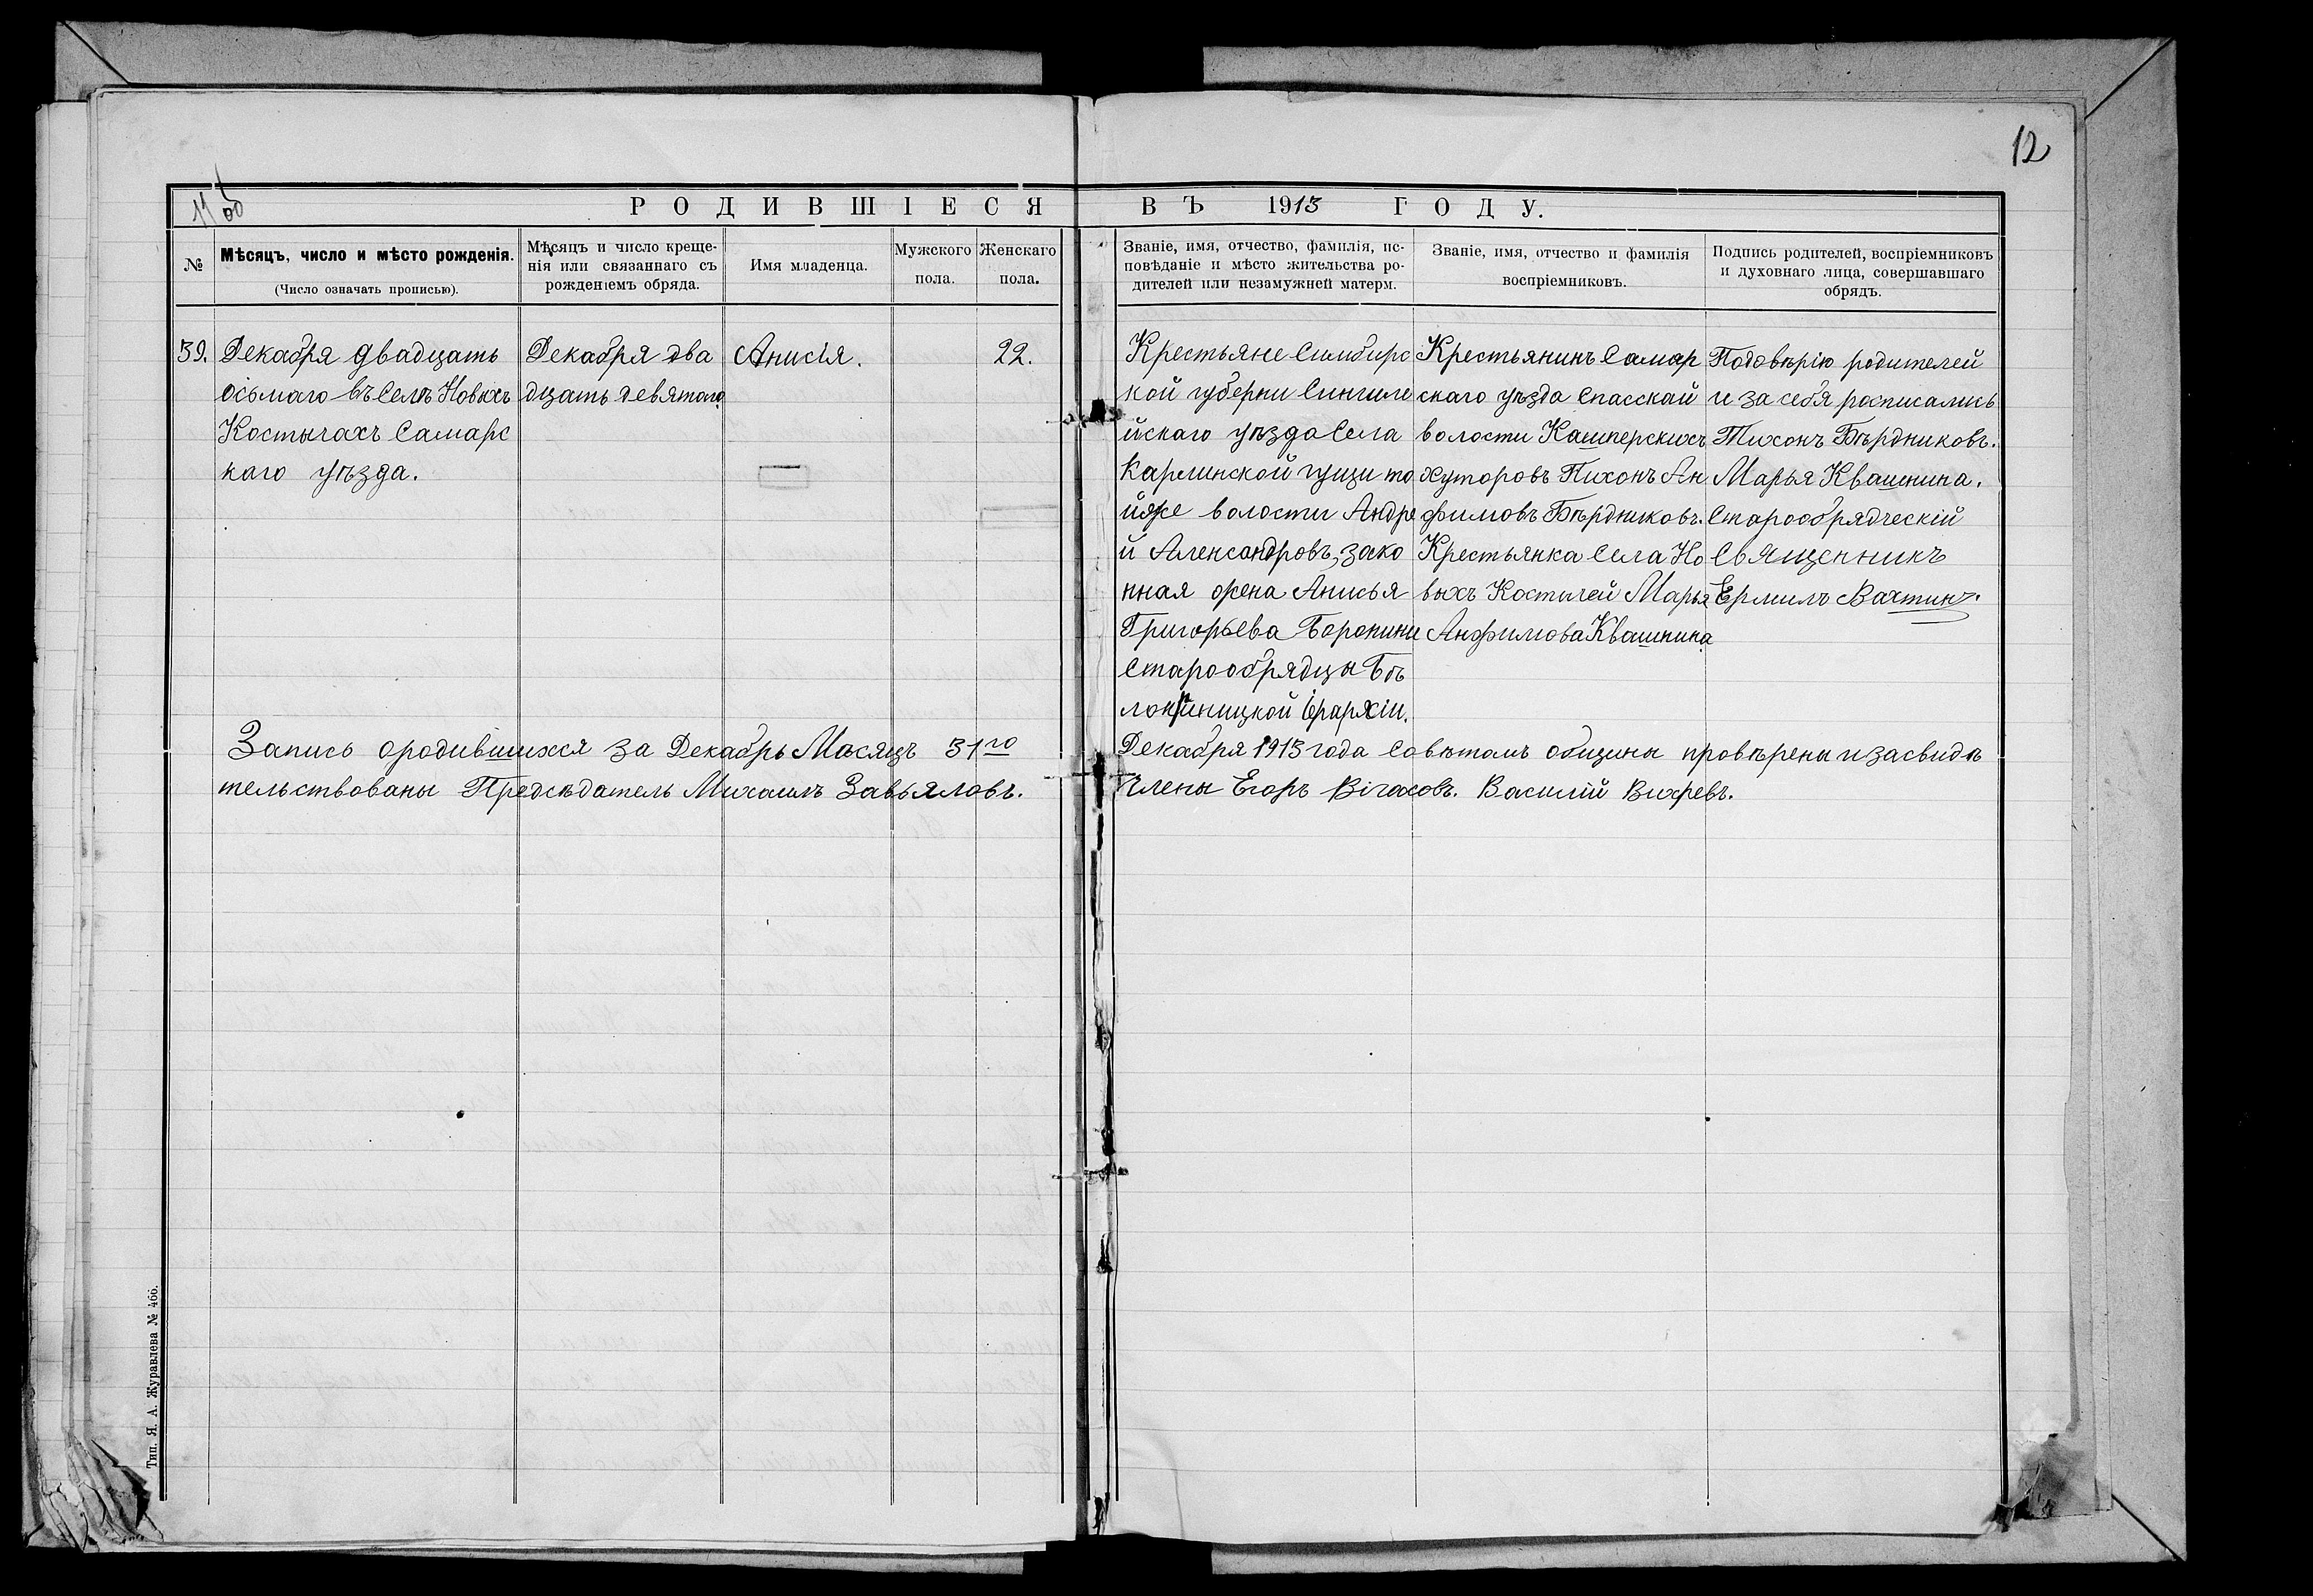 12
11 об
РОДИВШІЕСЯ ВЪ 1913 ГОДУ.
№
Мѣсяцъ, число и мѣсто рожденія.
(Число означать прописью).
Мѣсяцъ и число креще-
нія или связаннаго съ
рожденіемъ обряда.
Имя младенца.
Мужского
пола.
Женскаго
пола.
Званіе, имя, отчество, фамилія, ис-
повѣданіе и мѣсто жительства ро-
дителей или незамужней матери.
Званіе, имя, отчество и фамилія
воспріемниковъ.
Подпись родителей, воспріемниковъ
и духовнаго лица, совершавшаго
обрядъ.
39.
Декабря двадцать
осьмаго въ Селѣ Новыхъ
Костычахъ Самарс
каго уѣзда.
Декабря два
дцать девятаго
Анисія.
22.
Крестьяне Симбирс
кой губерни Сингиле
йскаго уѣзда Села
Карлинской гущи то
йже волости Андре
й Александровъ, зако
нная жена Анисья
Григорьева Боронины
Старообрядцы Бѣ
локриницкой Ерархіи.
Крестьянинъ Самар
скаго уѣзда Спасскай
волости Кашперскихъ
хуторовъ Тихонъ Ан
фимовъ Бѣрдниковъ.
Крестьянка Села Но
выхъ Костычей Марья
Анфимова Квашнина
Подовѣрію родителей
и за себя росписались
Тихонъ Бѣрдниковъ.
Марья Квашнина.
Старообрядческій
Священникъ
Ермилъ Вахтинъ.
Запись ородившихся за Декабрь Мѣсяцъ 31го Декабря 1913 года Совѣтомъ общины провѣрены и засвидѣ
тельствованы Предсѣдатель Михаилъ Завьяловъ. Члены Егоръ Вігасовъ. Василій Вихревъ.
Тип. Я. А. Журавлева № 466.